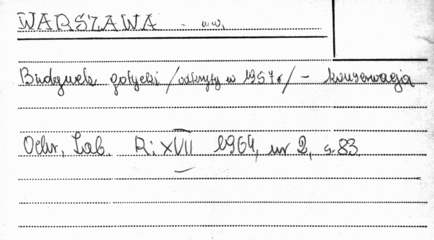 WARSZAWA - m.
Budynek gotycki /odkryty w 1957r/ - konserwacja
Ochr. Zab. R: XVII 1964, nr 2, s. 83